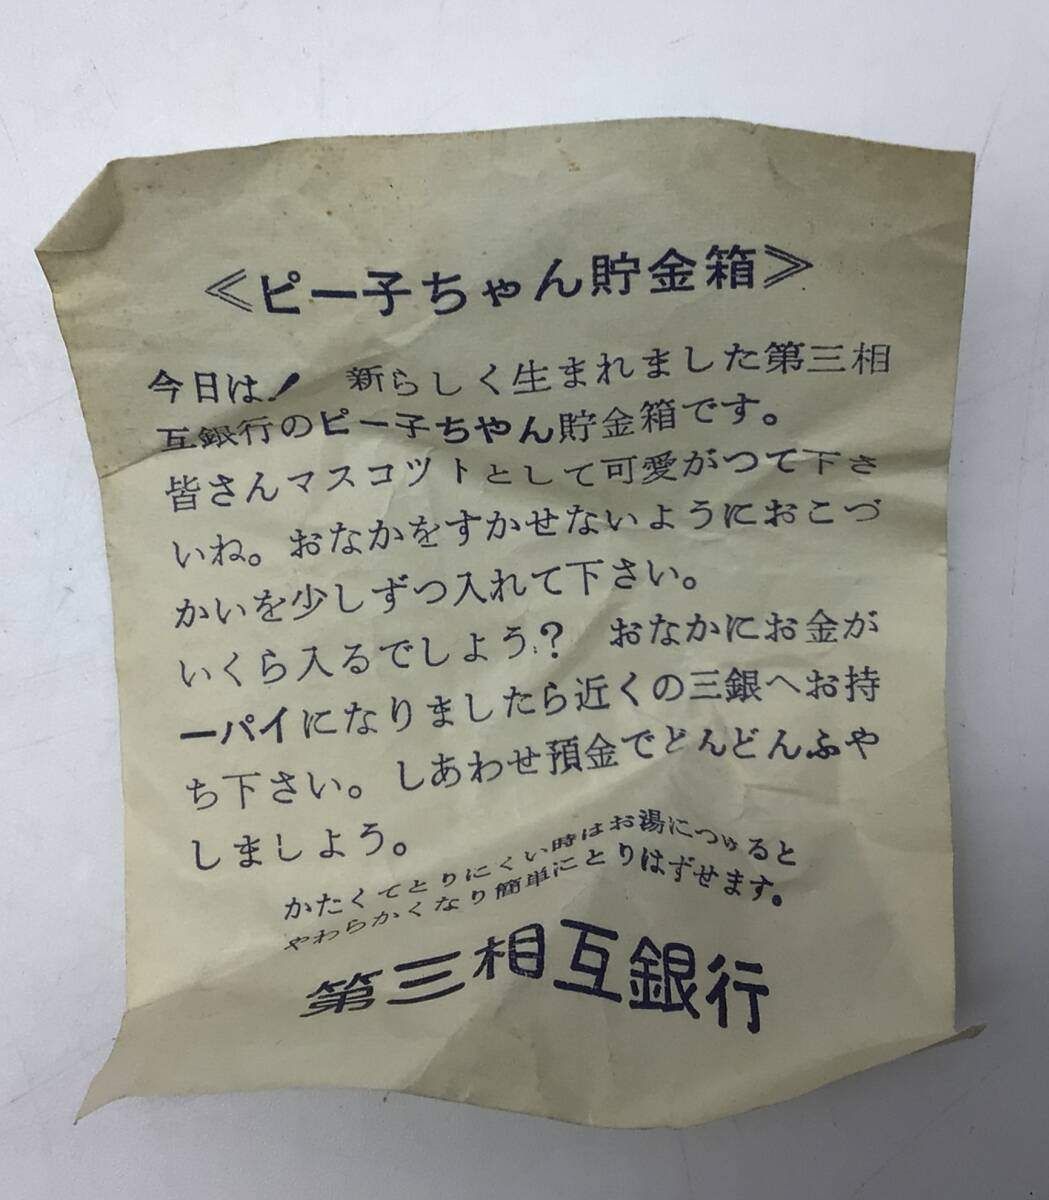 ≪ピー子ちゃん貯金箱≫
今日は！　新らしく生まれました第三相
互銀行のピー子ちやん貯金箱です。
皆さんマスコツトとして可愛がつて下さ
いね。おなかをすかせないようにおこづ
かいを少しずつ入れて下さい。
いくら入るでしよう？　おなかにお金が
一パイになりましたら近くの三銀へお持
ち下さい。しあわせ預金でどんどんふや
しましよう。
かたくてとりにくい時はお湯につけると
やわらかくなり簡単にとりはずせます。
第三相互銀行